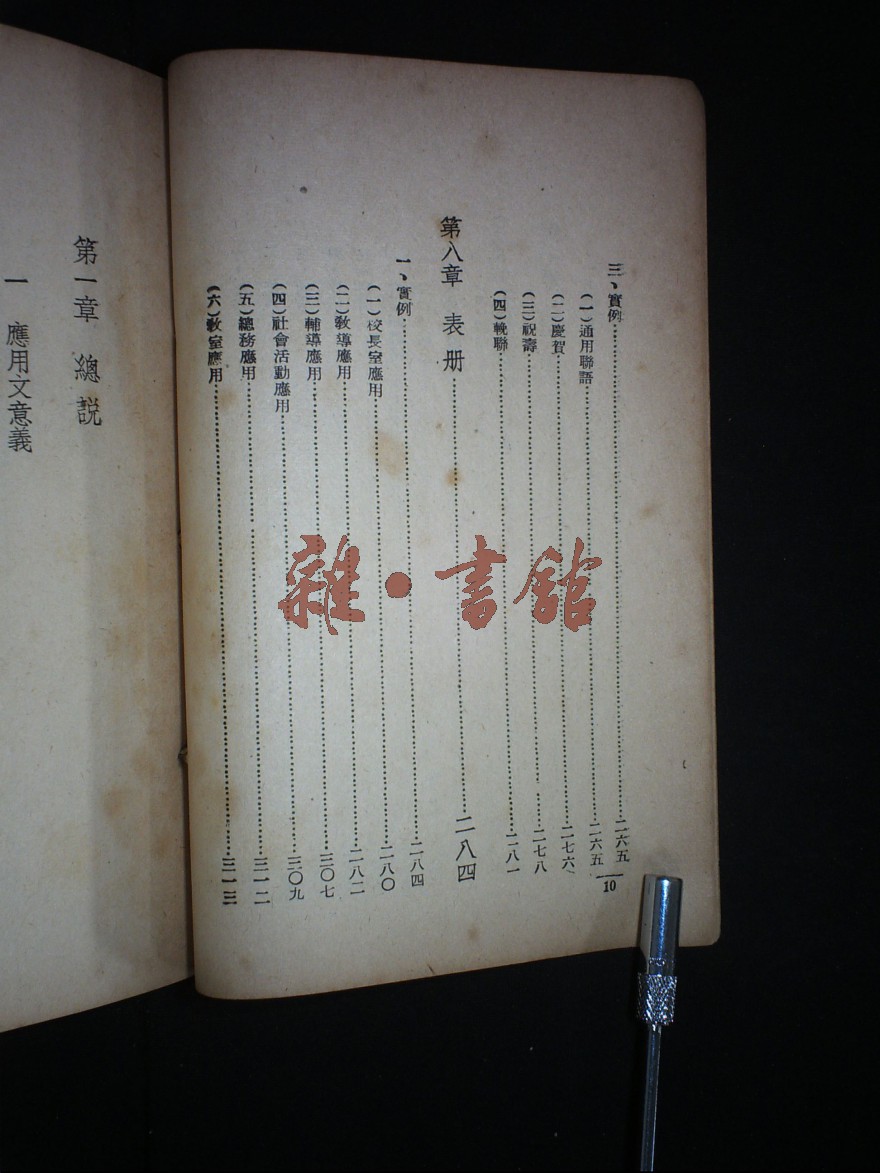 三、實例……二六五
(一)通用聯語……二六五
(二)慶賀……二七六
(三)祝壽……二七八
(四)輓聯……二八一
第八章 表册……二八四
一、實例……二八四
(一)校長室應用……二八〇
(二)敎導應用……二八二
(三)輔導應用……三〇七
(四)社會活動應用……三〇九
(五)總務應用……三一二
(六)敎室應用……三一三
10
第一章 總說
一 應用文意義
雜·書館